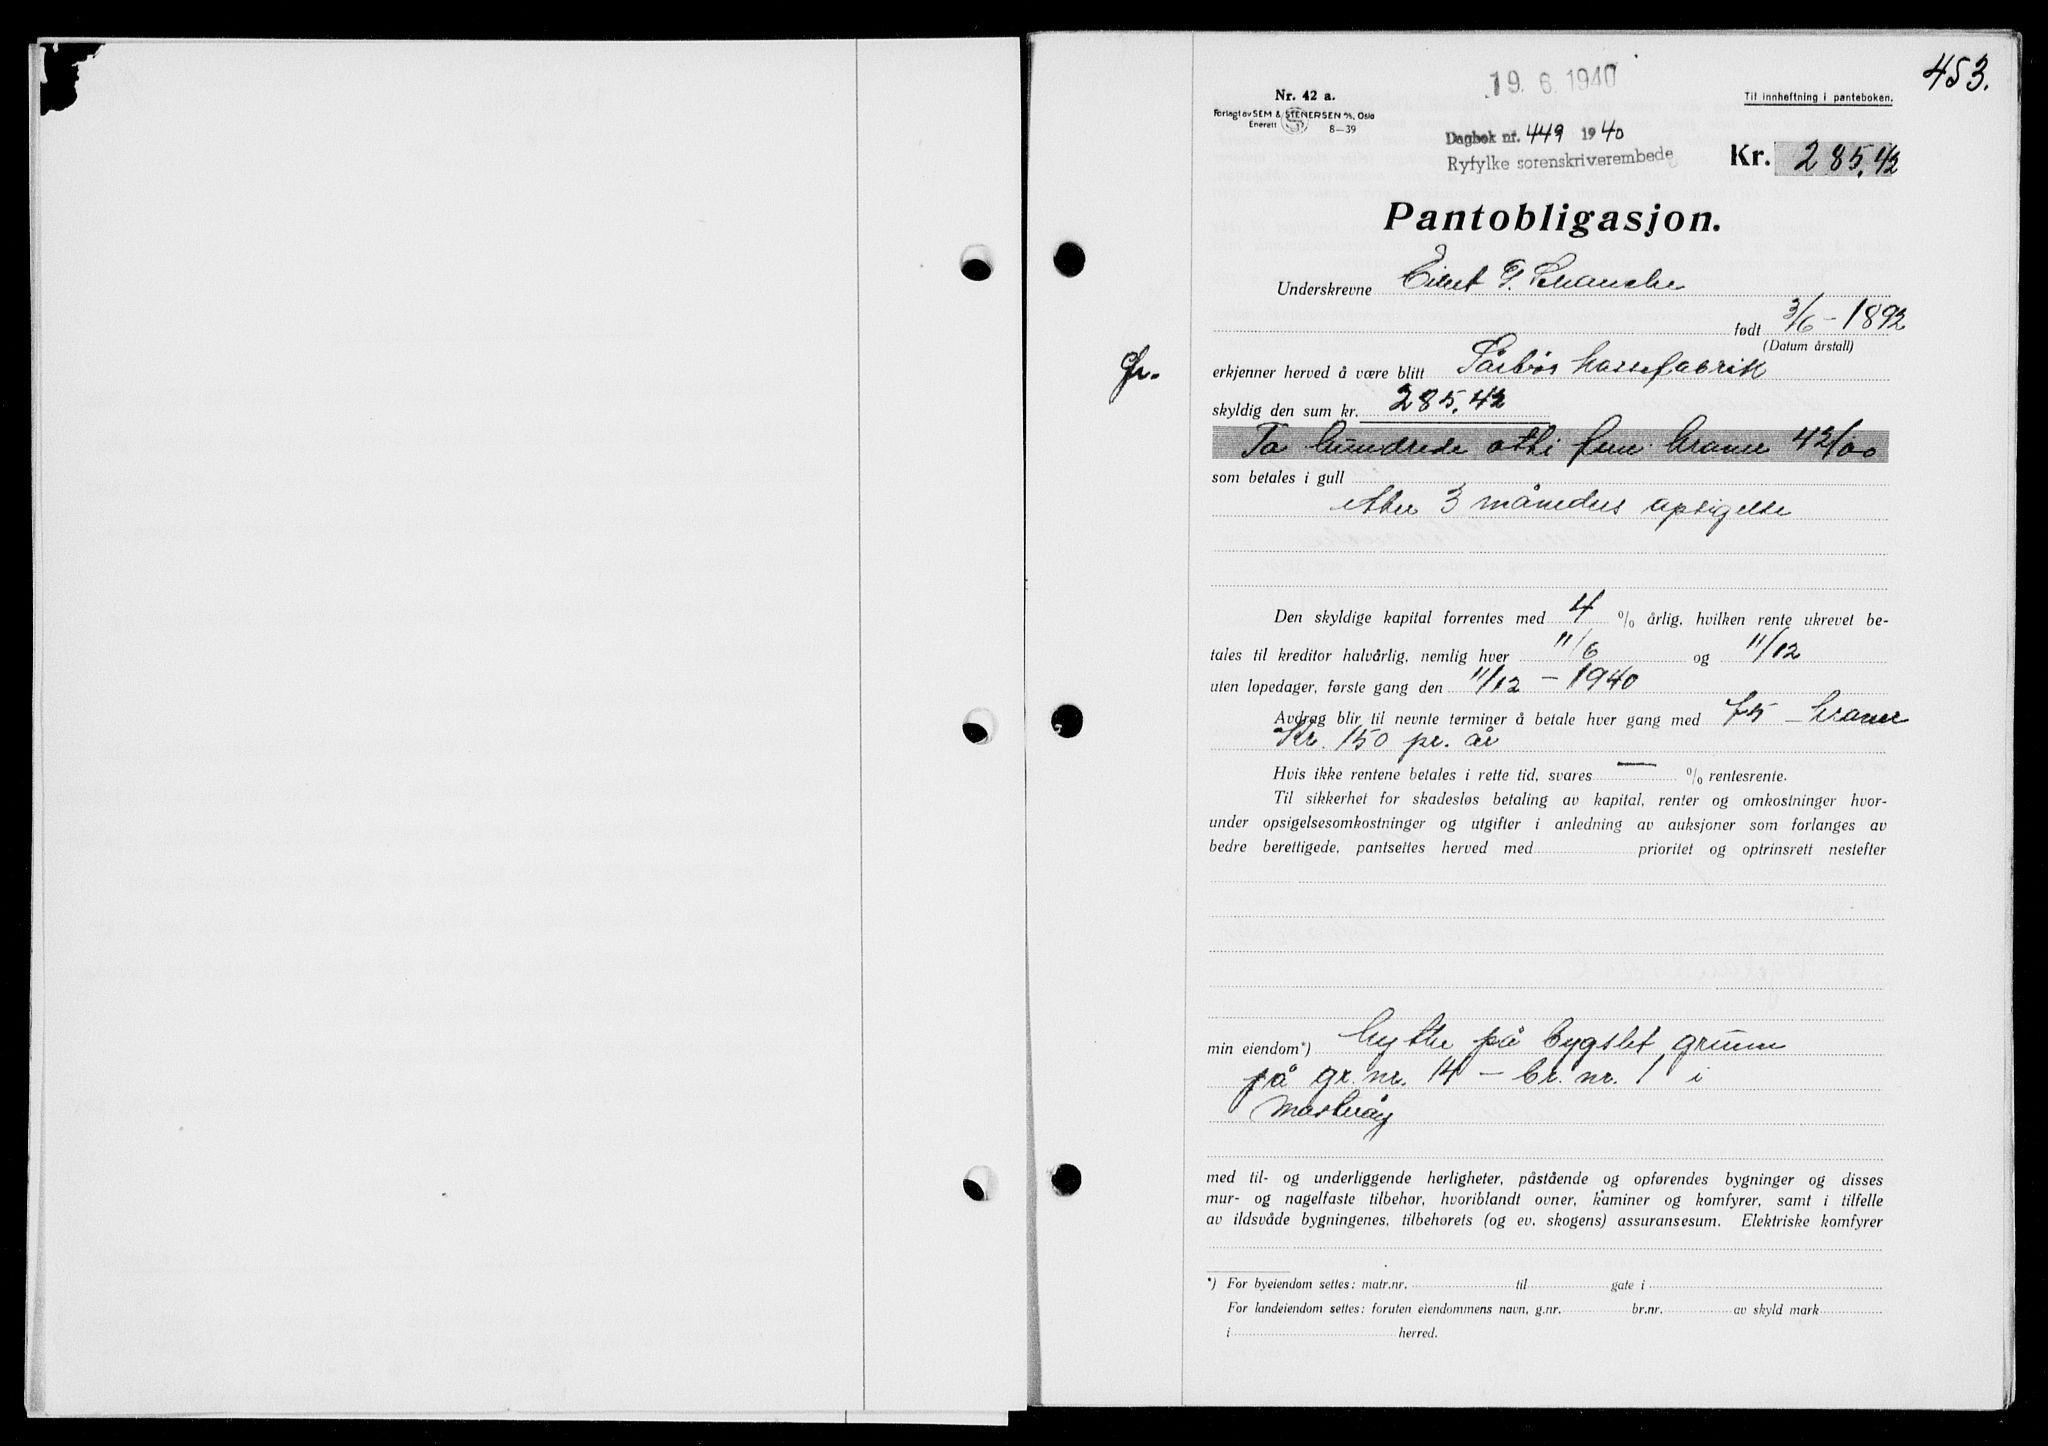 453.
19. 6. 1940
Nr. 42 a.
Til innheftning i panteboken.
Forlagt av SEM & STENERSEN A/S, Oslo
Enerett 8-39
Dagbok nr. 449 1940
Ryfylke sorenskriverembede
Kr. 285,42
Pantobligasjon.
Underskrevne
født 3/6 - 1892
(Datum årstall)
erkjenner herved å være blitt fabrik
skyldig den sum kr. 285,42
To hundrede otti fem kroner 42/00
som betales i gull
etter 3 måneders opsigelse
Den skyldige kapital forrentes med 4 % årlig, hvilken rente ukrevet be-
tales til kreditor halvårlig, nemlig hver 11/6 og 11/12
uten løpedager, første gang den 11/12 - 1940
Avdrag blir til nevnte terminer å betale hver gang med 75 - kroner
Kr. 150 pr. år
Hvis ikke rentene betales i rette tid, svares — % rentesrente.
Til sikkerhet for skadesløs betaling av kapital, renter og omkostninger hvor-
under opsigelsesomkostninger og utgifter i anledning av auksjoner som forlanges av
bedre berettigede, pantsettes herved med prioritet og optrinsrett nestefter
min eiendom*) hytte på bygslet grunn
på gr. nr. 14 - br. nr. 1 i
Mosterøy
med til- og underliggende herligheter, påstående og opførendes bygninger og disses
mur- og nagelfaste tilbehør, hvoriblandt ovner, kaminer og komfyrer, samt i tilfelle
av ildsvåde bygningenes, tilbehørets (og ev. skogens) assuransesum. Elektriske komfyrer
*) For byeiendom settes: matr.nr. til gate i
For landeiendom settes: foruten eiendommens navn, g.nr. br.nr. av skyld mark
i herred.